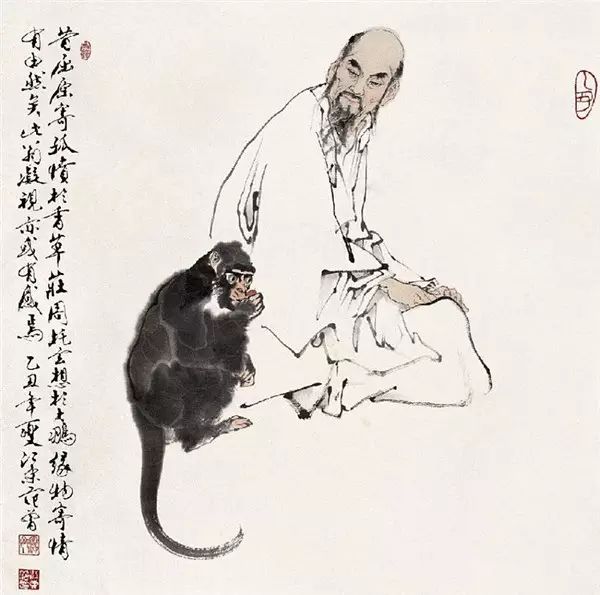 昔屈原寄孤憤於香草莊周托玄想於大鵬緣物寄情
有由然矣此翁凝視亦或有感焉乙丑年夏江東范曾